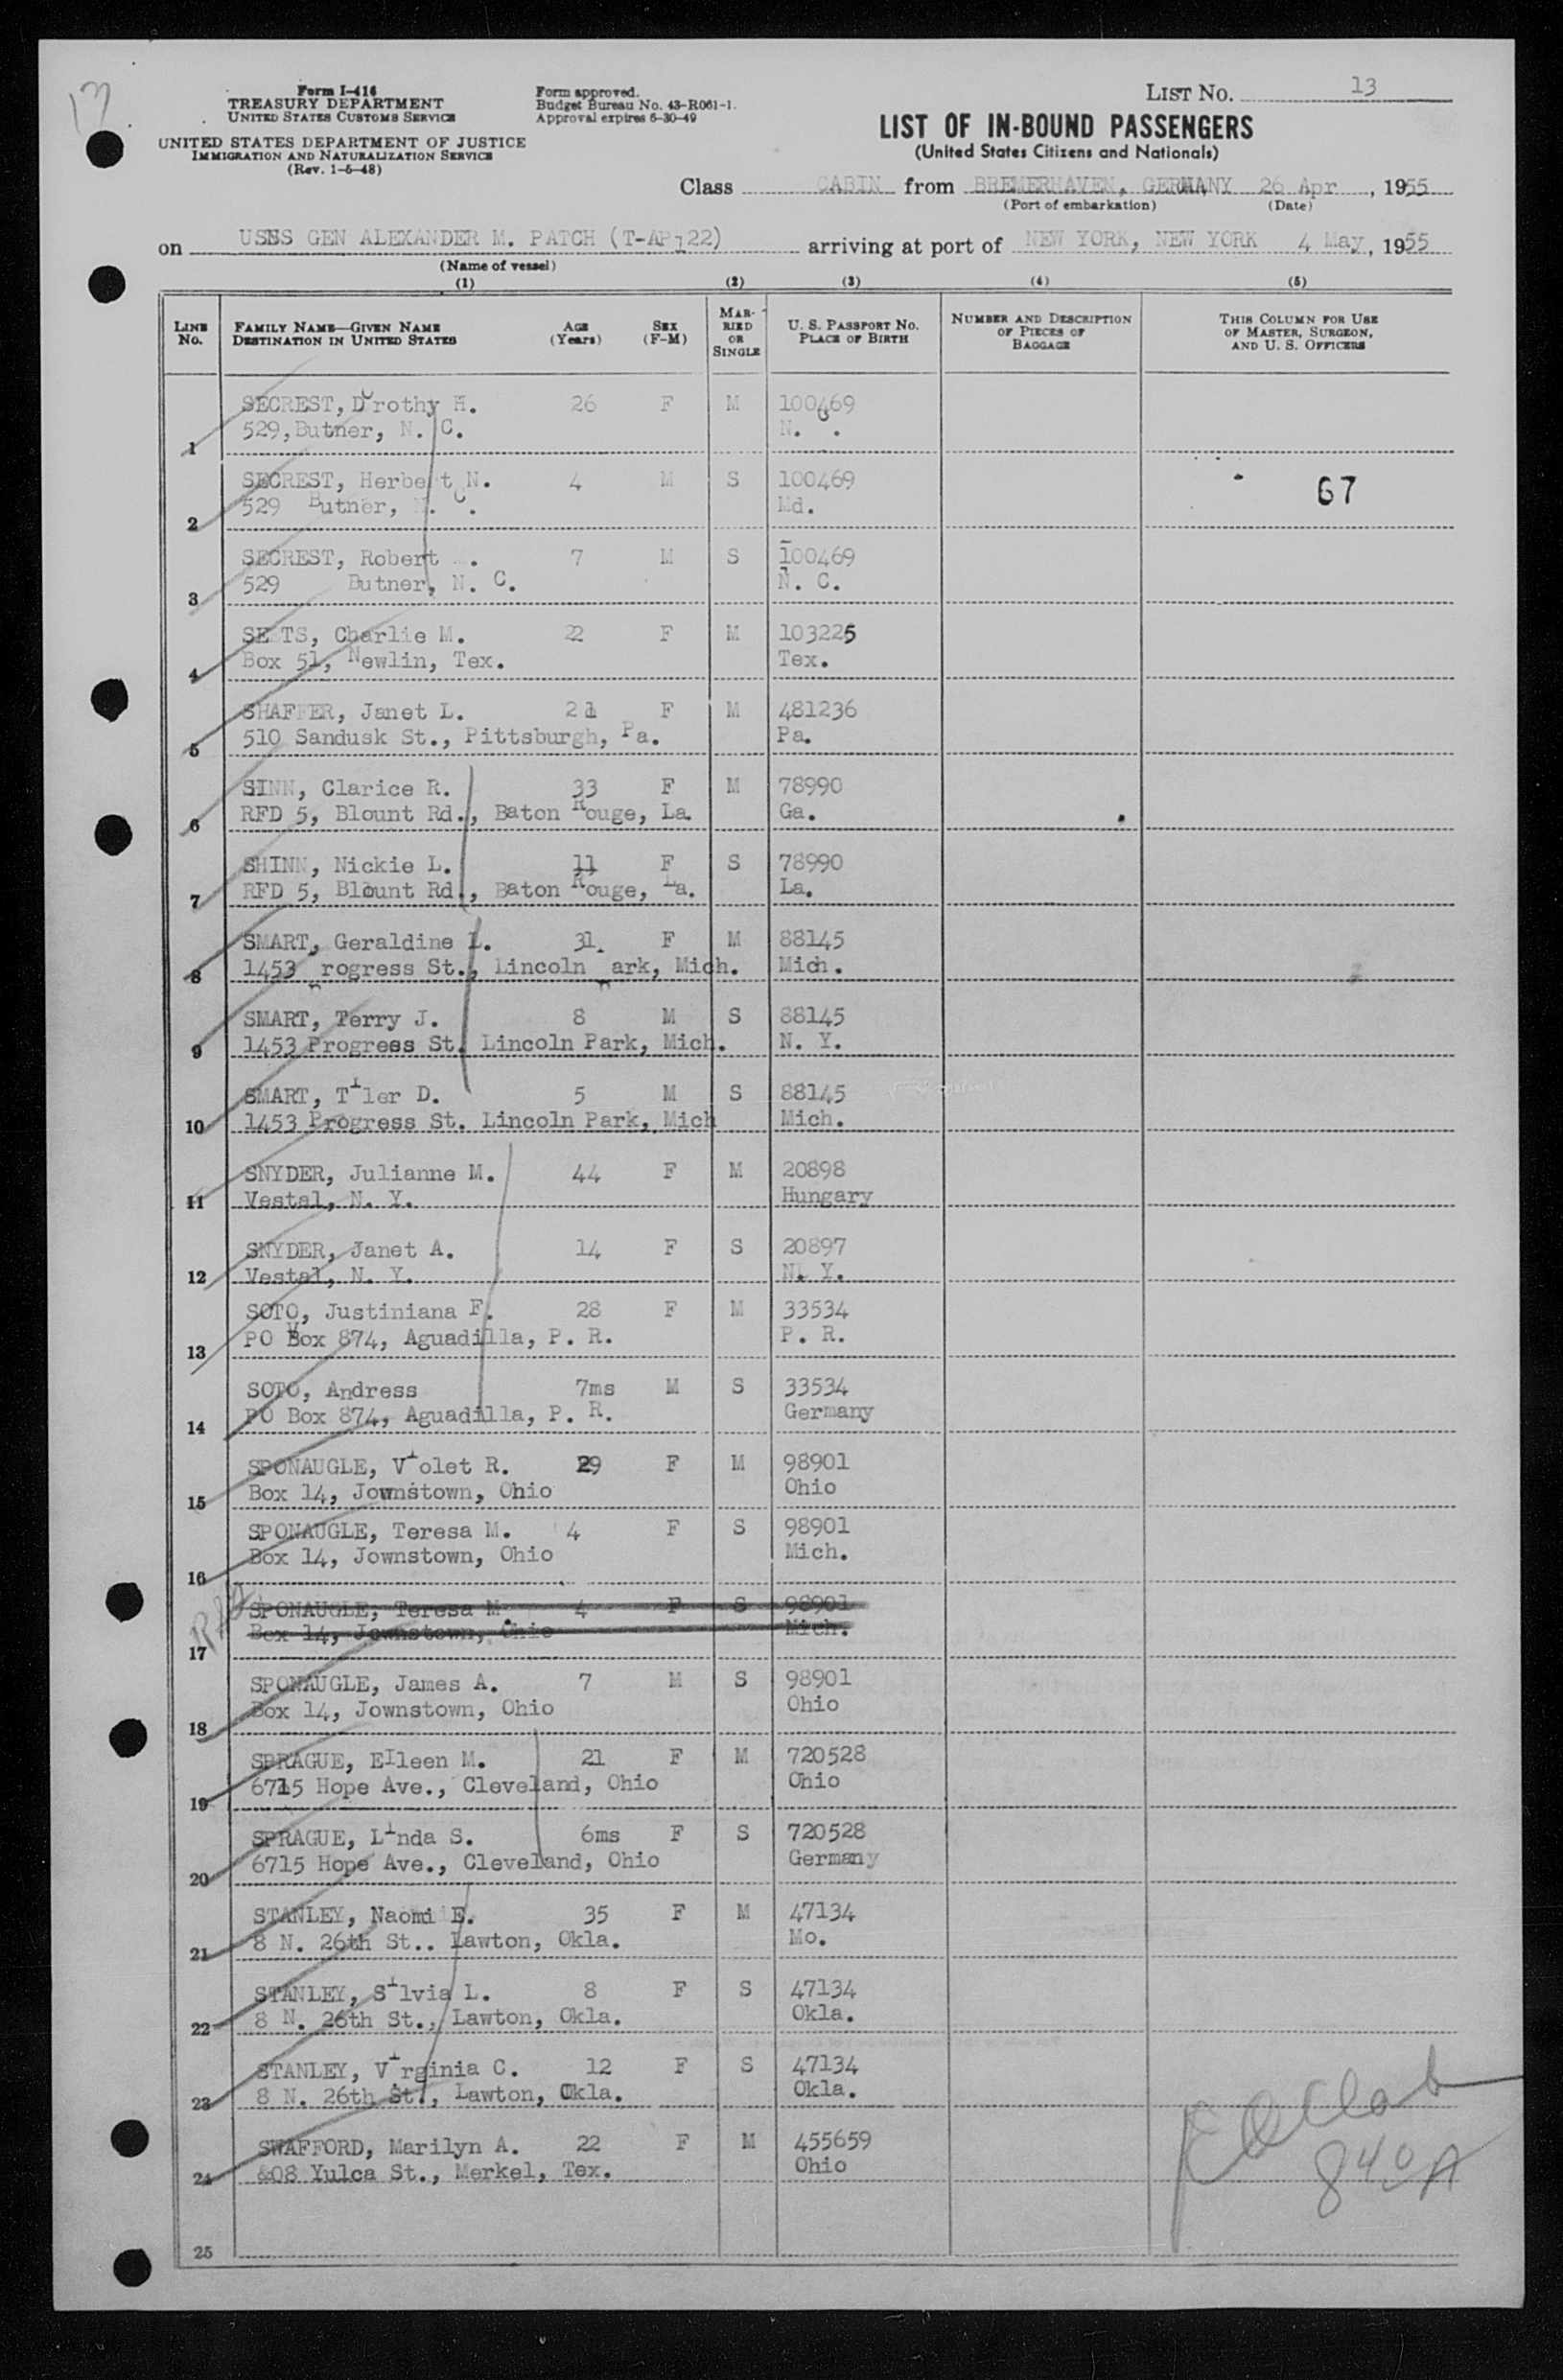 13
Form I-416
TREASURY DEPARTMENT
UNITED STATES CUSTOMS SERVICE
UNITED STATES DEPARTMENT OF JUSTICE
IMMIGRATION AND NATURALIZATION SERVICE
(Rev. 1-5-48)
Form approved.
Budget Bureau No. 43-R061-1.
Approval expires 6-30-49
LIST No. 13
LIST OF IN-BOUND PASSENGERS
(United States Citizens and Nationals)
Class CABIN from BREMERHAVEN, GERMANY 26 Apr, 1955
(Port of embarkation) (Date)
on USNS GEN ALEXANDER M. PATCH (T-AP-122) arriving at port of NEW YORK, NEW YORK 4 May, 1955
(Name of vessel)
(1) (2) (3) (4) (5)
LINE No. FAMILY NAME—GIVEN NAME DESTINATION IN UNITED STATES AGE (Years) SEX (F-M) MARRIED OR SINGLE U. S. PASSPORT NO. PLACE OF BIRTH NUMBER AND DESCRIPTION OF PIECES OF BAGGAGE THIS COLUMN FOR USE OF MASTER, SURGEON, AND U. S. OFFICERS
SECREST, Dorothy H. 26 F M 100469
1 529, Butner, N. C. N. C.
SECREST, Herbert N. 4 M S 100469 67
2 529 Butner, N. C. Md.
SECREST, Robert . 7 M S 100469
3 529 Butner, N. C. N. C.
SETTS, Charlie M. 22 F M 103225
4 Box 51, Newlin, Tex. Tex.
SHAFFER, Janet L. 21 F M 481236
5 510 Sandusk St., Pittsburgh, Pa. Pa.
SINN, Clarice R. 33 F M 78990
6 RFD 5, Blount Rd., Baton Rouge, La. Ga.
SHINN, Nickie L. 11 F S 78990
7 RFD 5, Blount Rd., Baton Rouge, La. La.
SMART, Geraldine L. 31 F M 88145
8 1453 Progress St., Lincoln Park, Mich. Mich.
SMART, Terry J. 8 M S 88145
9 1453 Progress St. Lincoln Park, Mich. N. Y.
SMART, Tiler D. 5 M S 88145
10 1453 Progress St. Lincoln Park, Mich Mich.
SNYDER, Julianne M. 44 F M 20898
11 Vestal, N. Y. Hungary
SNYDER, Janet A. 14 F S 20897
12 Vestal, N. Y. N. Y.
SOTO, Justiniana F. 28 F M 33534
13 PO Box 874, Aguadilla, P. R. P. R.
SOTO, Andress 7ms M S 33534
14 PO Box 874, Aguadilla, P. R. Germany
SPONAUGLE, Violet R. 29 F M 98901
15 Box 14, Jownstown, Ohio Ohio
SPONAUGLE, Teresa M. 4 F S 98901
16 Box 14, Jownstown, Ohio Mich.
SPONAUGLE, Teresa M. 4 F S 98901
17 Box 14, Jownstown, Ohio Mich.
SPONAUGLE, James A. 7 M S 98901
18 Box 14, Jownstown, Ohio Ohio
SPRAGUE, EIleen M. 21 F M 720528
19 6715 Hope Ave., Cleveland, Ohio Ohio
SPRAGUE, Linda S. 6ms F S 720528
20 6715 Hope Ave., Cleveland, Ohio Germany
STANLEY, Naomi E. 35 F M 47134
21 8 N. 26th St.. Lawton, Okla. Mo.
STANLEY, Silvia L. 8 F S 47134
22 8 N. 26th St., Lawton, Okla. Okla.
STANLEY, Virginia C. 12 F S 47134
23 8 N. 26th St., Lawton, Okla. Okla.
SWAFFORD, Marilyn A. 22 F M 455659
24 608 Yulca St., Merkel, Tex. Ohio
840A
25